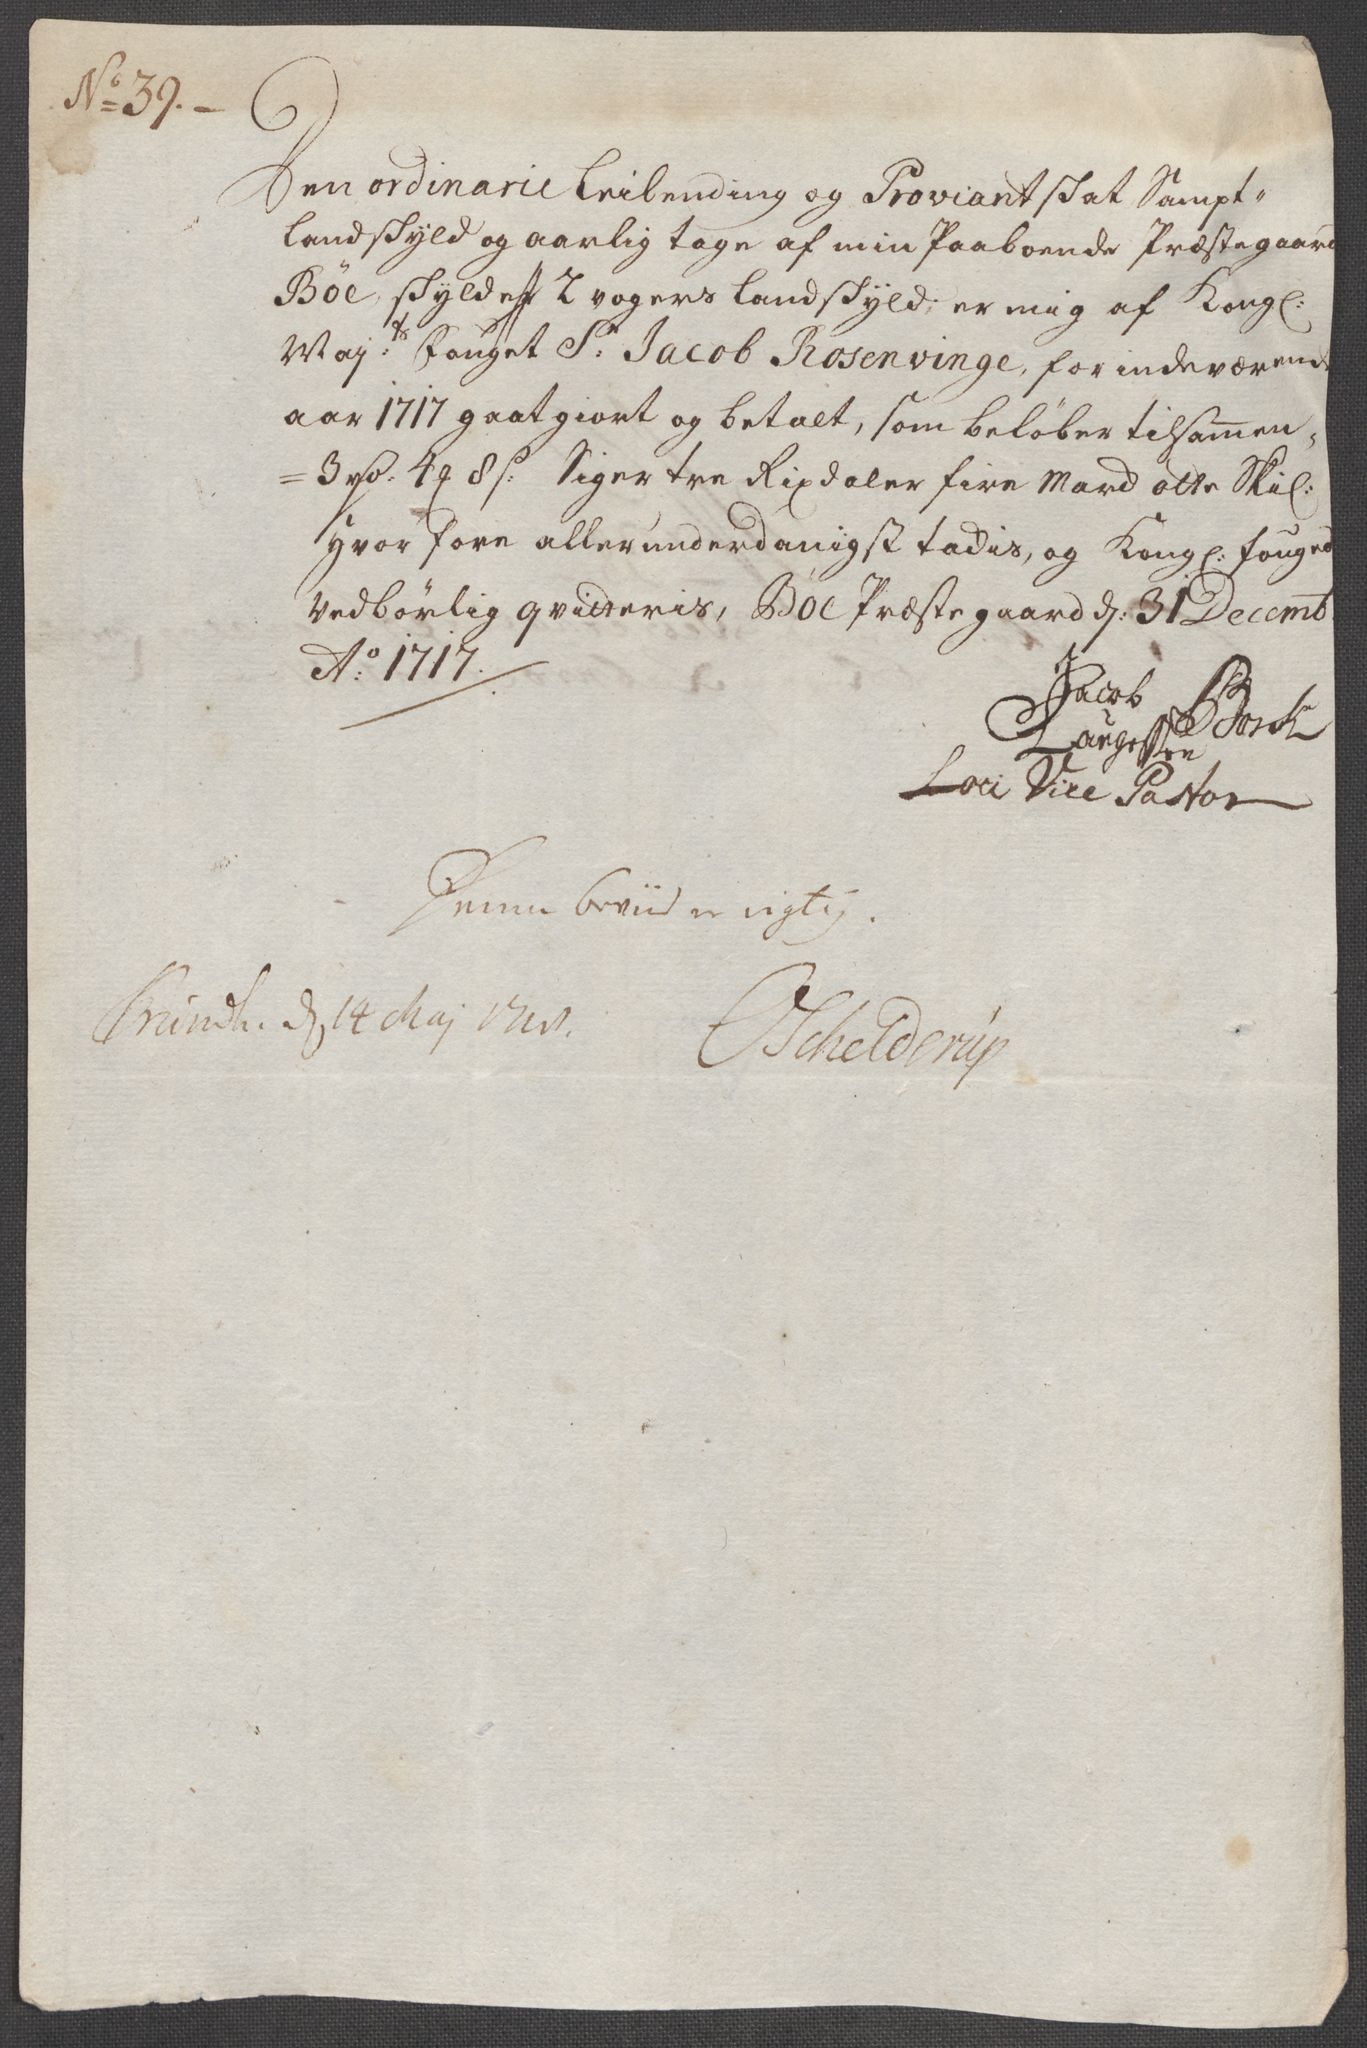 No 39.
Den ordinarie Leilending og Proviant skat Sampt
landskyld og aarlig tage af min Paaboende Præstegaard
Böe, skylder 2 vogers landskyld, er mig af Kongl:
Maj:ts Fouget Sr. Jacob Rosenvinge, for indeværende
aar 1717 gaatgiort og betalt, som beløber tilsamen,
= 3 rd. 4 8 s: Siger tre Rixdaler fire Marck otte Skil:
hvor fore allerunderdanigst tackis, og Kongl: fouged
vedbörlig qvitteris, Böe Præstegaard d: 31 Decemb
Ao: 1717.
Jacob
Laugessen Borch
Loci Vice Pastor
Denne beviis er rigtig.
Trundh. d 14 Maj
Schelderup